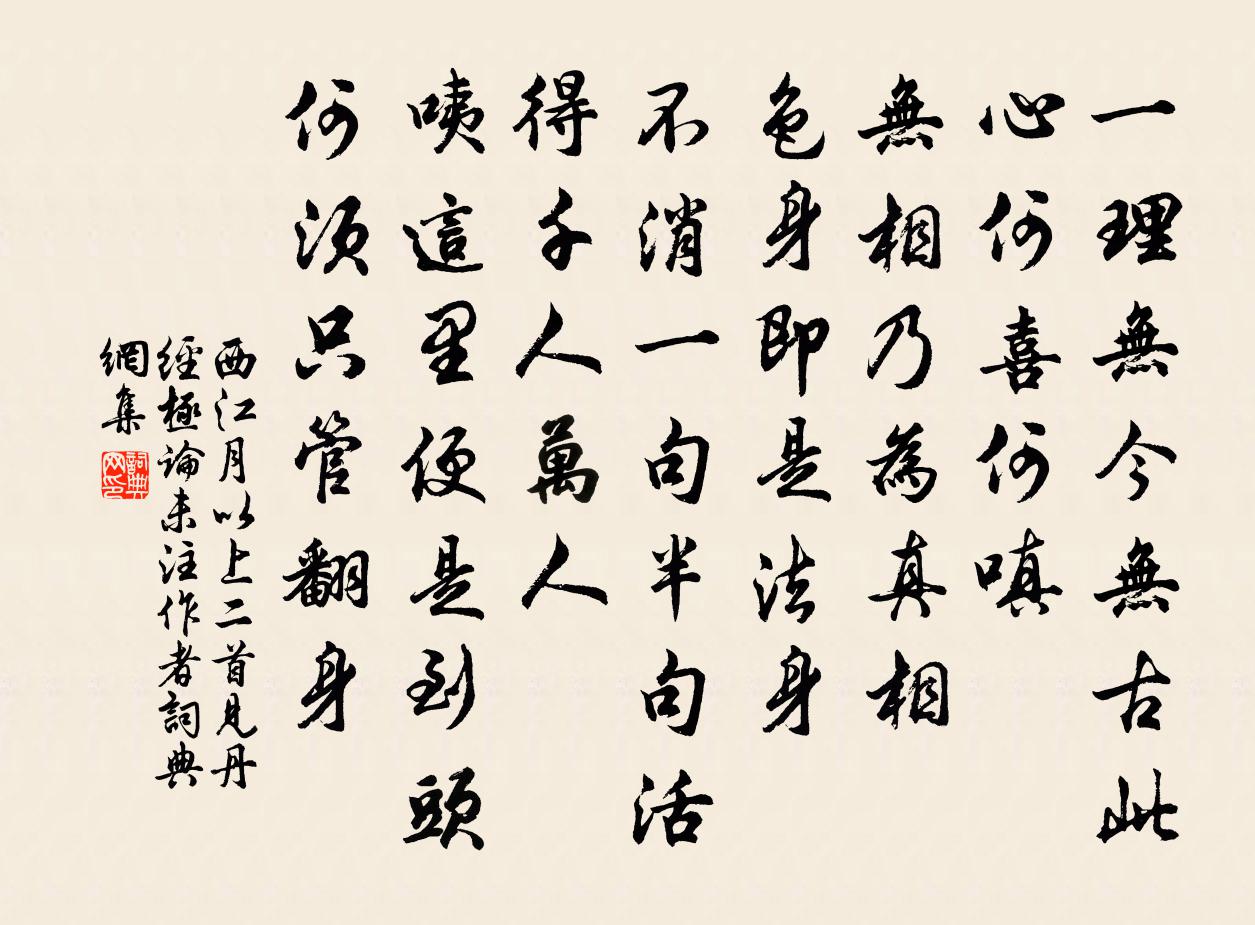 一理無今無古此
心何喜何嗔
無相乃為真相
色身即是法身
不消一句半句活
得千人萬人
咦這里便是到頭
何須只管翻身
西江月以上二首見丹
經極論未注作者詞典
網集
詞典
网印